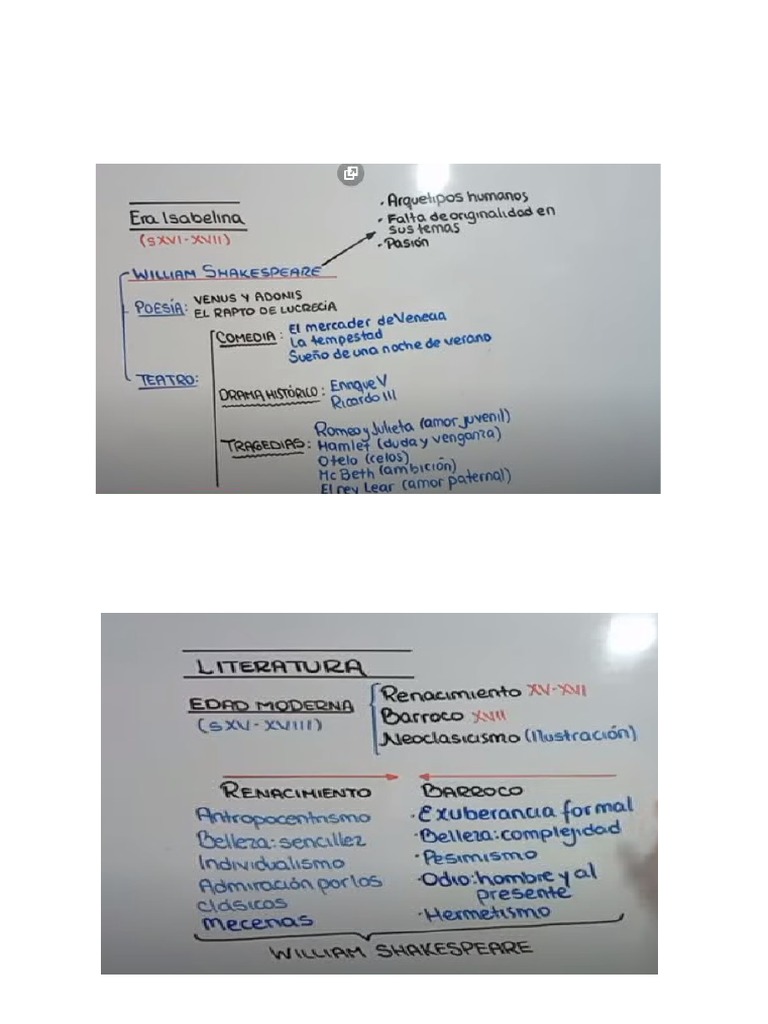 Era Isabelina
(SXVI-XVII)
· Arquetipos humanos
· Falta de originalidad en
sus temas
· Pasión
WILLIAM SHAKESPEARE
POESÍA: VENUS Y ADONIS
EL RAPTO DE LUCRECIA
TEATRO:
COMEDIA: El mercader de Venecia
La tempestad
Sueño de una noche de verano
DRAMA HISTÓRICO: Enrique V
Ricardo III
TRAGEDIAS: Romeo y Julieta (amor juvenil)
Hamlet (duda y venganza)
Otelo (celos)
McBeth (ambición)
El rey Lear (amor paternal)
LITERATURA
EDAD MODERNA
(SXV-XVIII)
Renacimiento XV-XVI
Barroco XVII
Neoclasicismo (Ilustración)
RENACIMIENTO
Antropocentrismo
Belleza: sencillez
Individualismo
Admiración por los
clásicos
Mecenas
BARROCO
· Exuberancia formal
· Belleza: complejidad
· Pesimismo
· Odio: hombre y al
presente
· Hermetismo
WILLIAM SHAKESPEARE